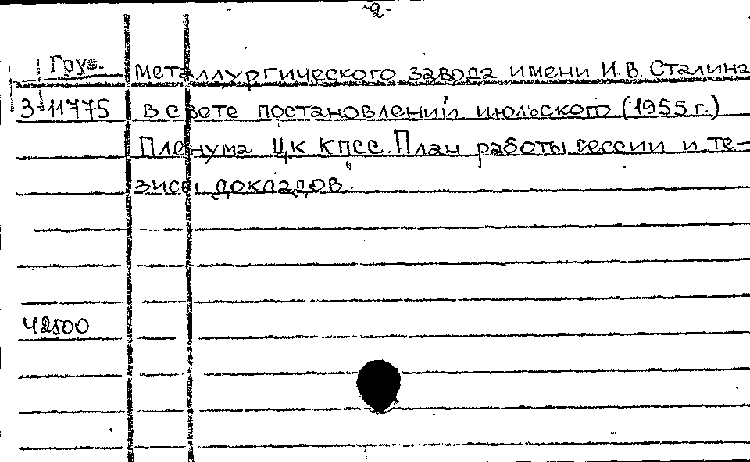 -2-
Груз. Металлургического завода имени И.В. Сталина
3-11775 в свете постановлений июльского (1955 г.)
Пленума ЦК КПСС. План работы сессии и те-
зисы докладов.
42500